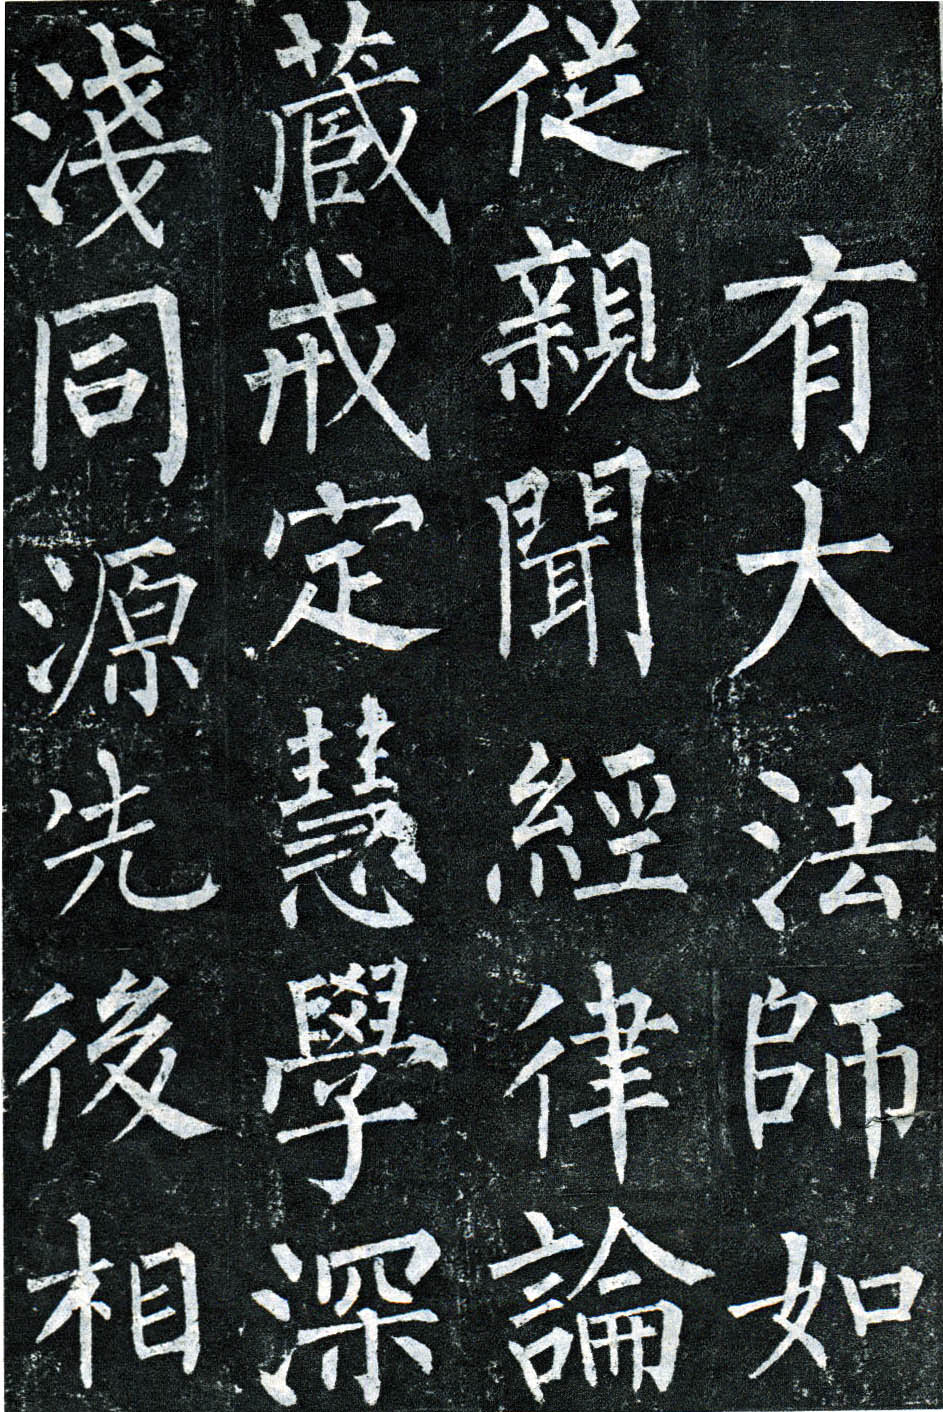 有大法師如
従親聞經律論
蔵戒定慧學深
淺同源先後相